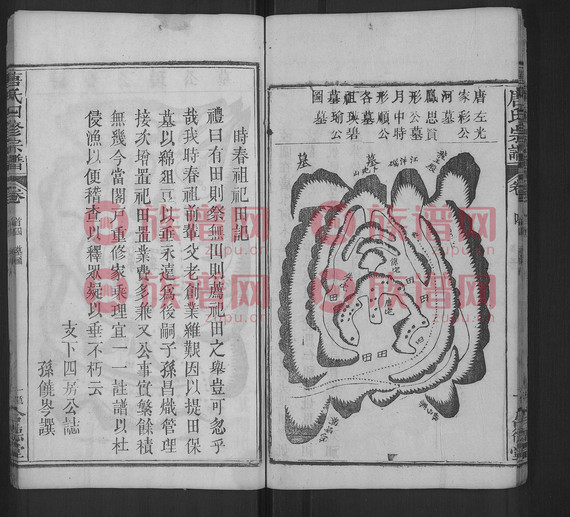 唐左光
家彩公
河墓
鳳思貫
形公墓
月中時
形順公
各墓
祖與碧
墓瑜公
圖墓
墓
田
田
田
田
田
時春祖祀田記
禮曰有田則祭無田則薦祀田之舉豈可忽乎
哉我時春祖前輩父老創業維艱因以提田保
墓以綿俎豆以垂永遠厥後嗣子孫昌熾管理
接次增置祀田置業費多兼又公事實繁餘積
無幾今當閤戶重修家乘理宜一一註譜以杜
侵漁以便稽查以釋眾疑以垂不朽云
支下四房公誌
孫饒岑譔
唐氏四修宗譜
卷
族谱网
zupu.cn
族谱网
zupu.cn
族谱网
zupu.cn
族谱网
zupu.cn